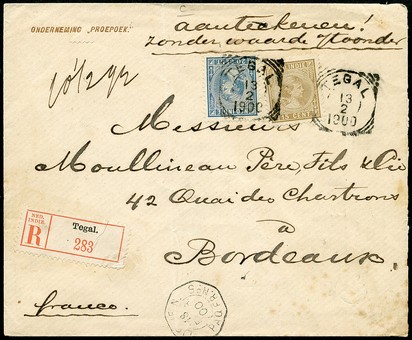 ONDERNEMING „PROEPOEK”.
aanteekenen!
zonder waarde
TEGAL
13
2
1900
TEGAL
13
2
1900
15 CENT
Messieurs
Moullineau Père, Fils & Cie
42 Quai des Chartrons
à
Bordeaux.
NED.
INDIE.
R
Tegal.
283
franco.